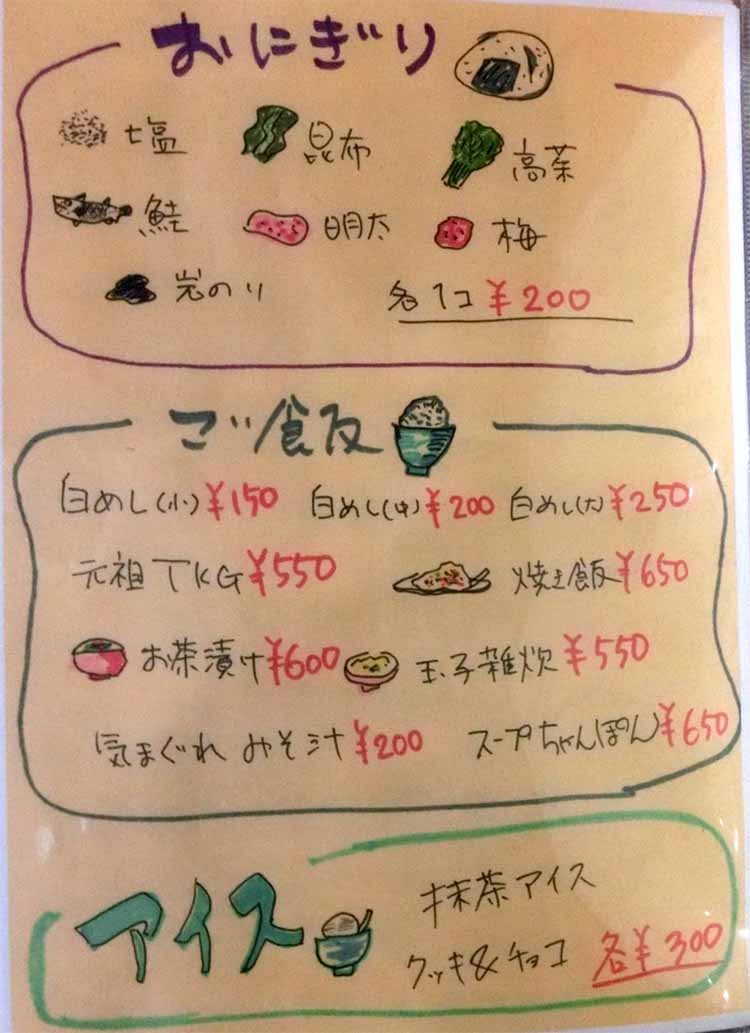 おにぎり
塩 昆布 高菜
鮭 明太 梅
岩のり 各1コ ¥200
ご飯
白めし(小)¥150 白めし(中)¥200 白めし(大)¥250
元祖TKG¥550 焼き飯¥650
お茶漬け¥600 玉子雑炊¥550
気まぐれ みそ汁¥200 スープちゃんぽん¥650
アイス
抹茶アイス
クッキ&チョコ 各¥300